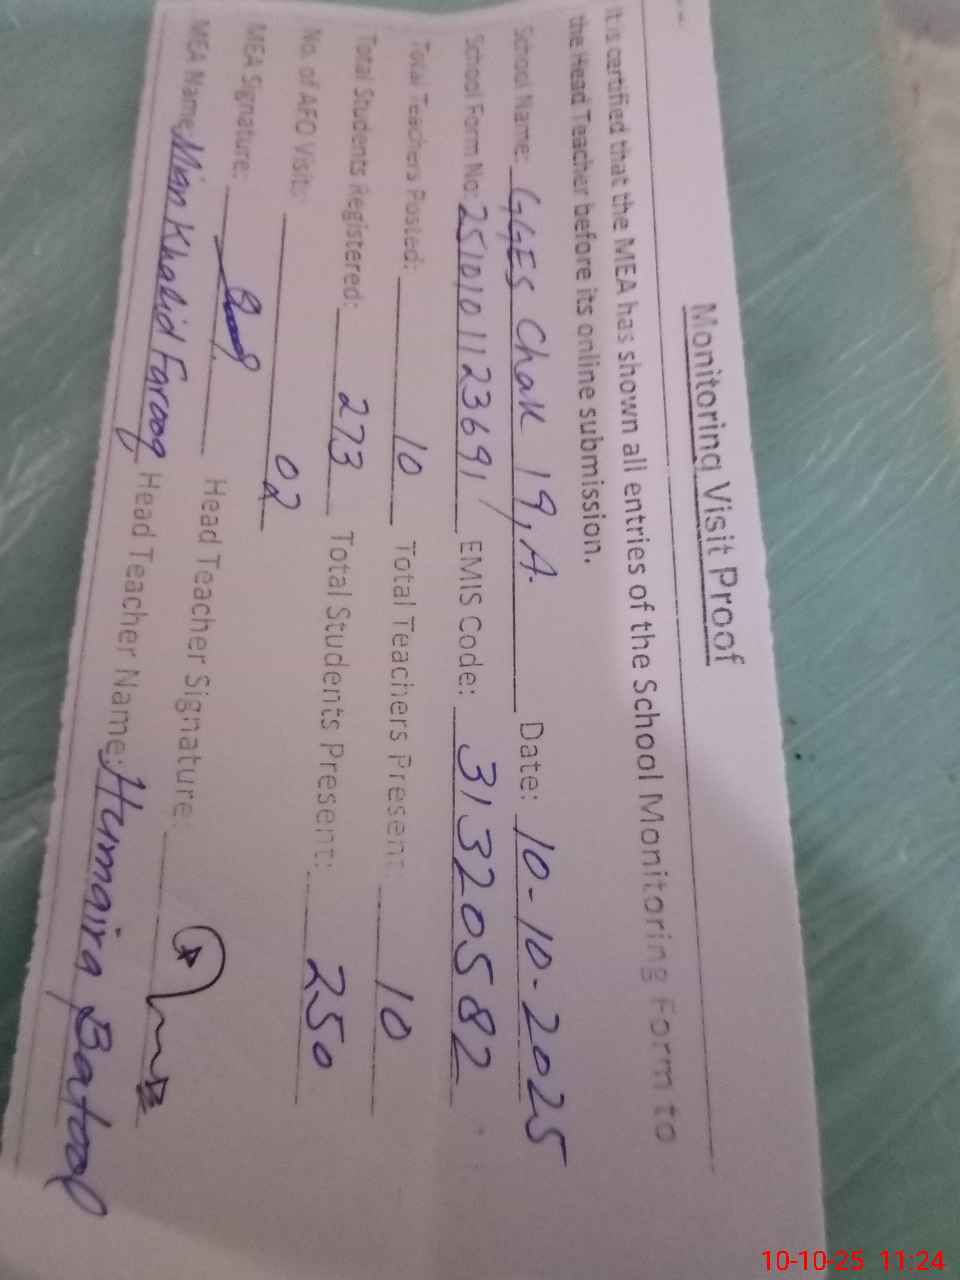 Monitoring Visit Proof
It is certified that the MEA has shown all entries of the School Monitoring Form to
the Head Teacher before its online submission.
School Name: GGES Chak 19, A. Date: 10-10-2025
School Form No: 2510101123691 EMIS Code: 31320582
Total Teachers Posted: 10 Total Teachers Present: 10
Total Students Registered: 273 Total Students Present: 250
No. of AEO Visit: 02
MEA Signature: Head Teacher Signature:
MEA Name: Mian Khalid Farooq Head Teacher Name: Humaira Batool
10-10-25 11:24